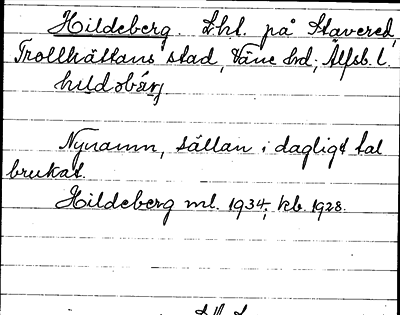 Hildeberg. Lht. på Stavered,
Trollhättans stad, Väne hd; Älfsb. l.
Nynamn, sällan i dagligt tal
brukat.
Hildeberg ml. 1934; kb. 1928.